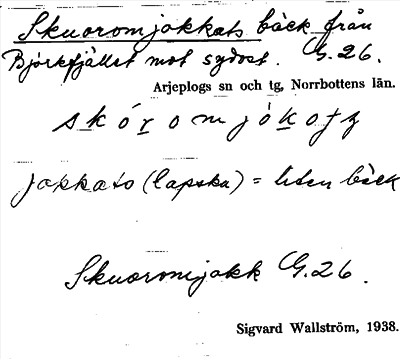 Skuoromjokkats bäck från
Björkfjället mot sydost. G. 26.
Arjeplogs sn och tg, Norrbottens län.
s k ó r o m j ó k o t z
jokkats (lapska) = liten bäck
Skuoromjokk G. 26.
Sigvard Wallström, 1938.